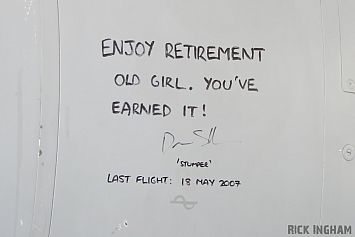 ENJOY RETIREMENT
OLD GIRL. YOU'VE
EARNED IT!
'STUMPER'
LAST FLIGHT: 18 MAY 2007
RICK INGHAM